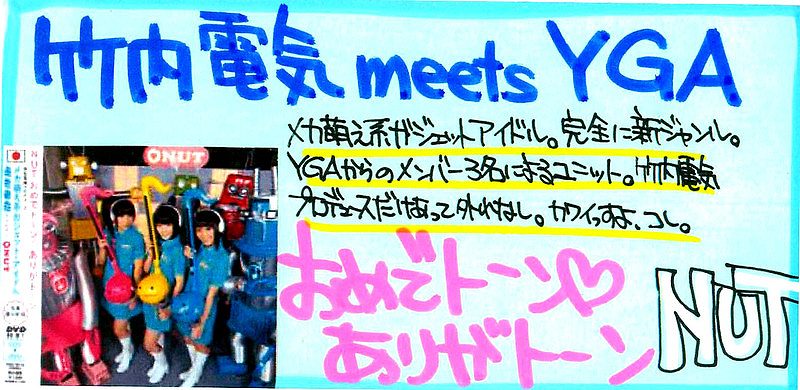 竹内電気 meets YGA
メカ萌え系ガジェットアイドル。完全に新ジャンル。
YGAからのメンバー3名によるユニット。竹内電気
プロデュースだけあって外れなし。カワイっすよ、コレ。
おめでトーン♡
ありがトーン
NUT
NUT
NUT おめでトーン ありがト
DVD